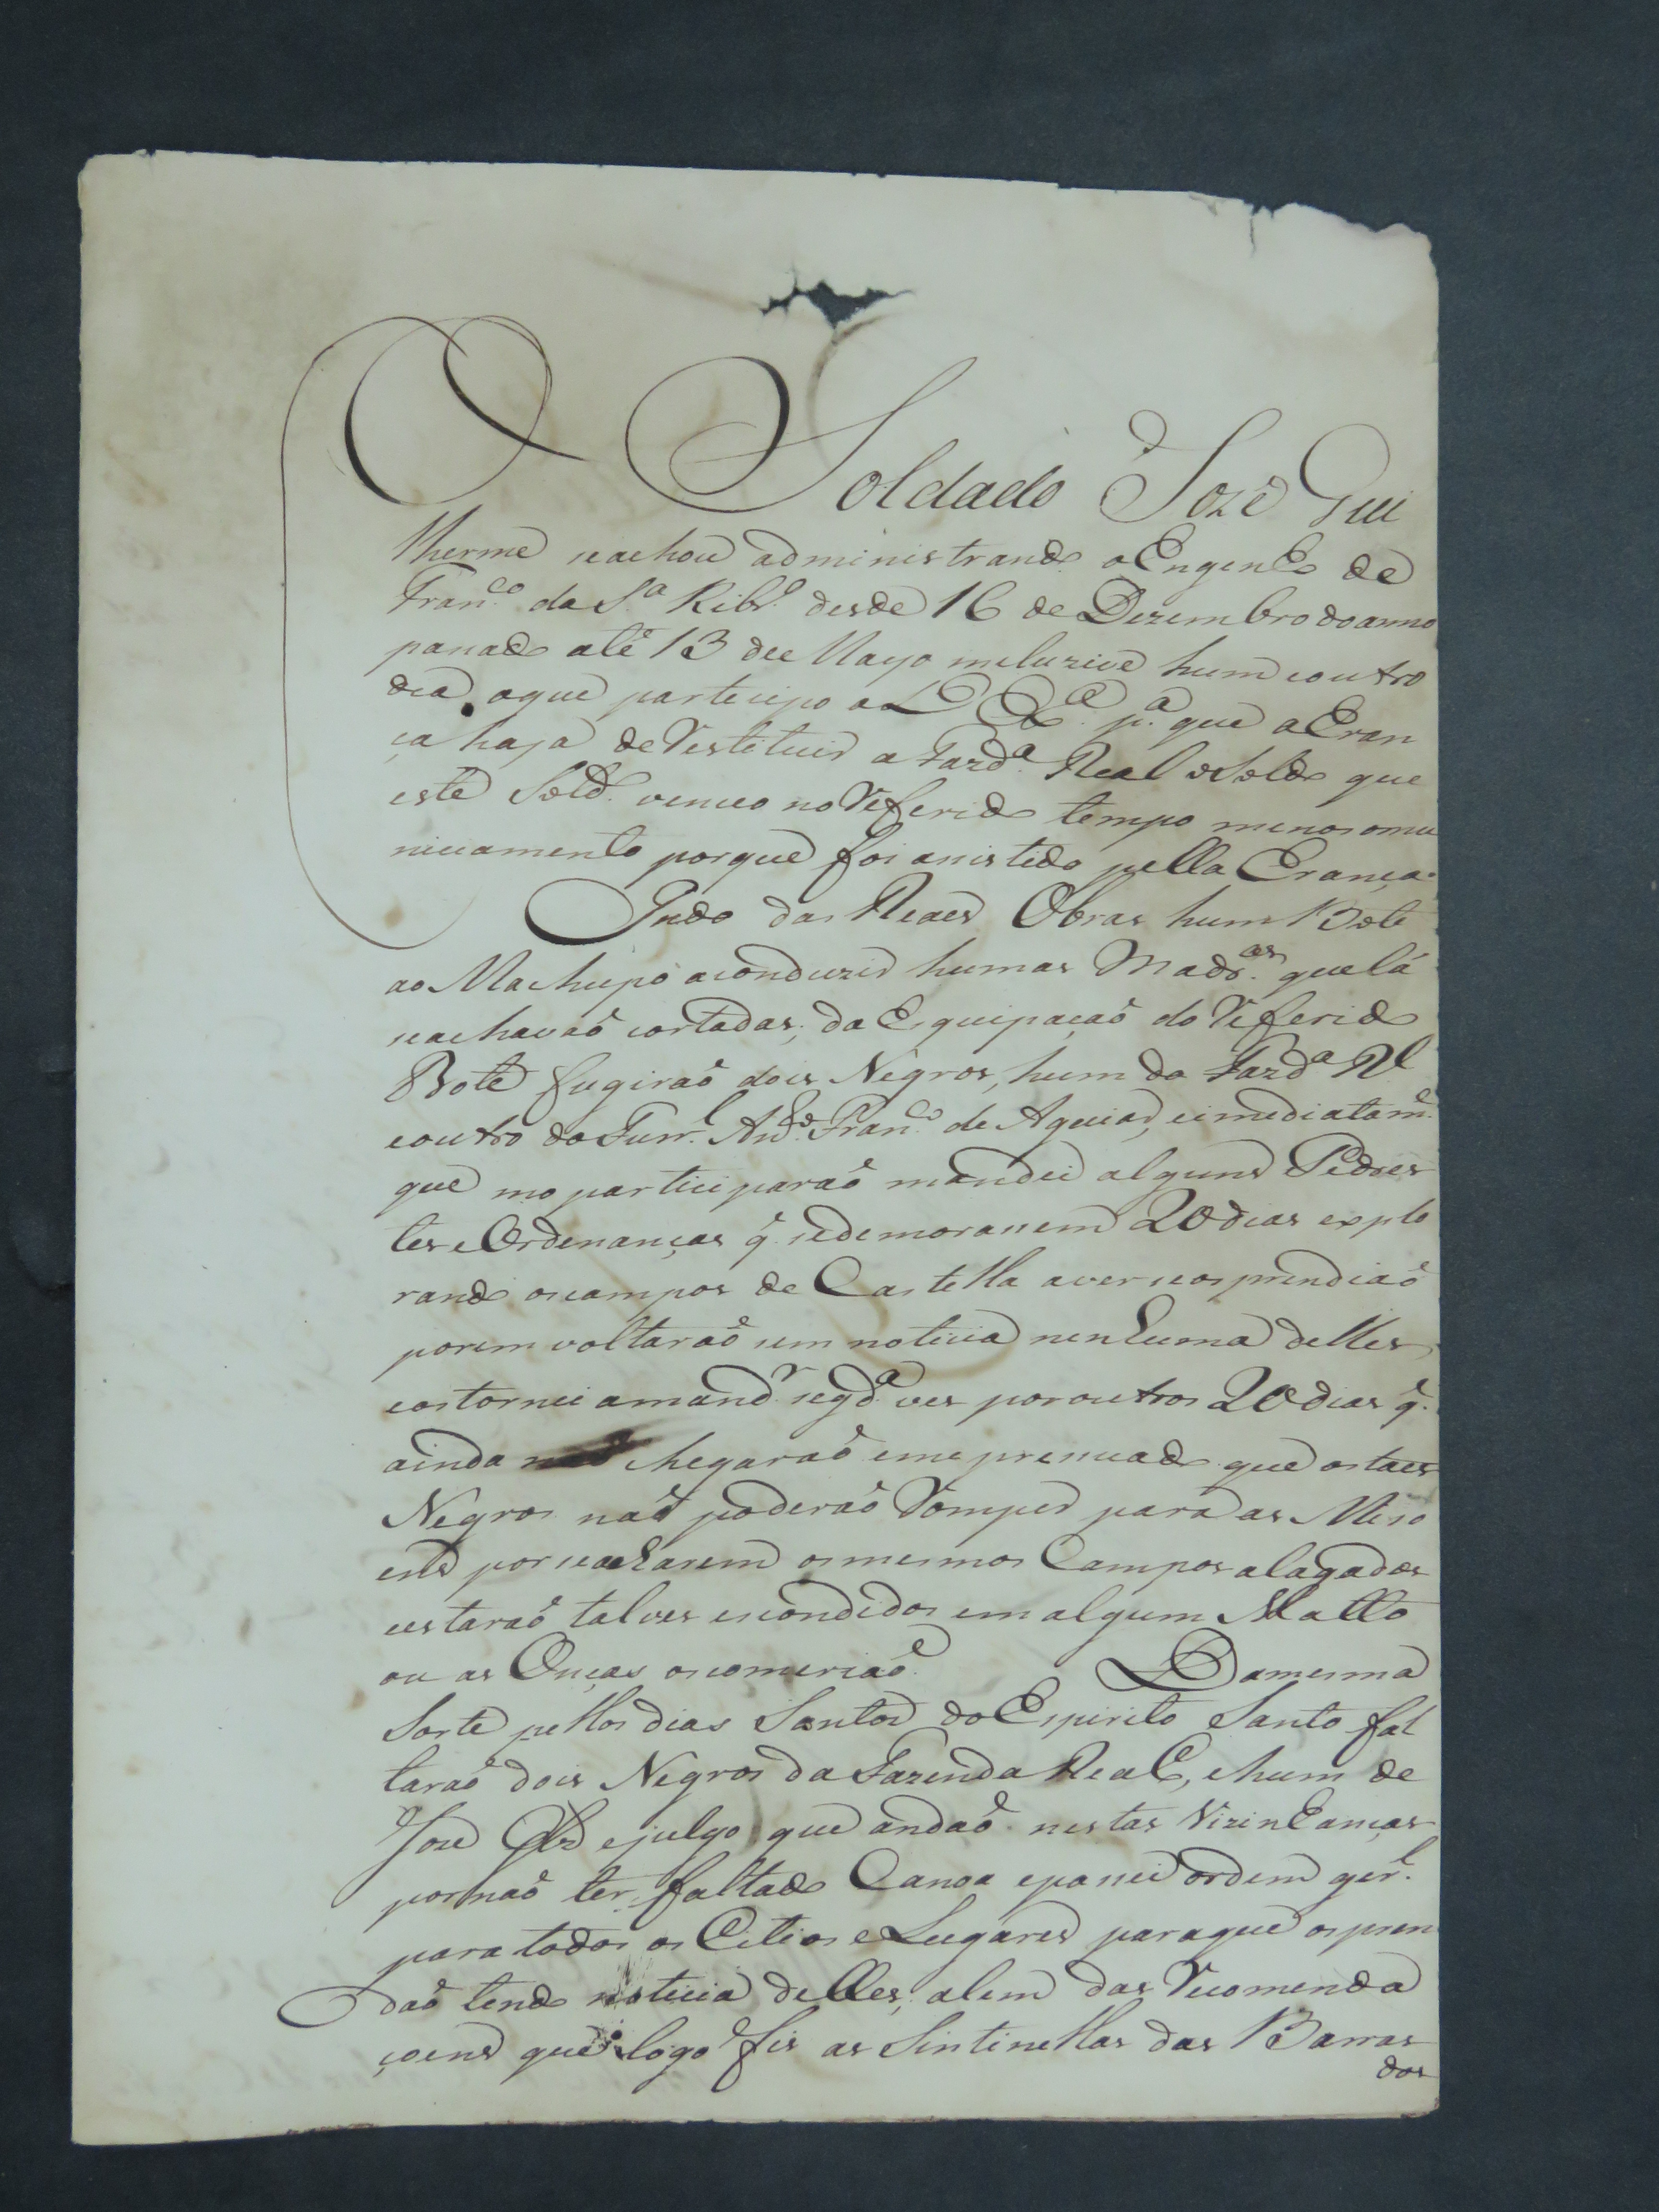 O Soldado Jozé Gui
lherme seachou administrando o Engenho de
Fran.co da S.a Ribr.o desde 16 de Dezembro do anno
passado até 13 de Mayo incluzive hum eoutro
dia, oque partecipo a V Ex.a p.a que a Eran
ça haja de Restituir a Fazd.a Real o Soldo que
este Sold.o venceo no Referido tempo menos omu
niciamento porque foi asistido pella Erança.
Indo das Reaes Obras hum Bote
ao Machupo aconduzir humas Madr.as que lá
seachavaõ cortadas, da Esquipaçaõ do Referido
Bote fugiraõ dois Negros, hum da Fazd.a R.l
eoutro do Furr.l Ant.o Fran.co de Aguiar, eimediatam.e
que mo participaraõ mandei alguns Pedres
tes e Ordenanças q̃ sedemorassem 20 dias explo
rando oscampos de Castella aver seosprendiaõ
porem voltaraõ sem noticia nenhuma delles,
eostornei amand.r segd.a ves poroutros 20 dias q̃.
ainda naõ chegaraõ eme presuado que ostaes
Negros naõ poderaõ Romper para as Miso
ens por seacharem osmesmos Campos alagados
eestaraõ talves escondidos em algum Matto
ou as Onças oscomeriaõ. Damesma
Sorte pellos dias Santos do Espirito Santo fal
taraõ dois Negros da Fazenda Real, ehum de
Joze ejulgo que andaõ nestas Vizinhanças
pornaõ ter faltado Canoa epassei ordem ger.l
para todos os Citios e Lugares paraque ospren
daõ tendo noticia delles, alem das Recomenda
çoens que logo fis as Sintinellas das Barras
dos